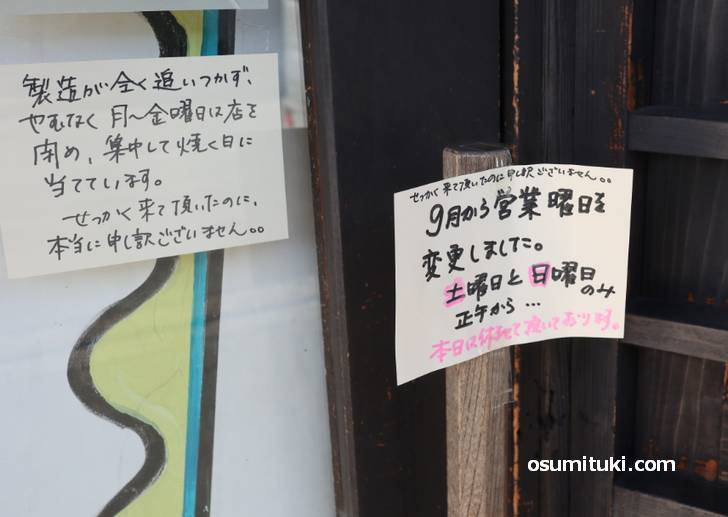 製造が全く追いつかず、
やむなく月〜金曜日は店を
閉め、集中して焼く日に
当てています。
せっかく来て頂いたのに、
本当に申し訳ございません。。
せっかく来て頂いたのに申し訳ございません。。
9月から営業曜日を
変更しました。
土曜日と日曜日
のみ
正午から…
本日は休ませて頂いております。
osumituki.com